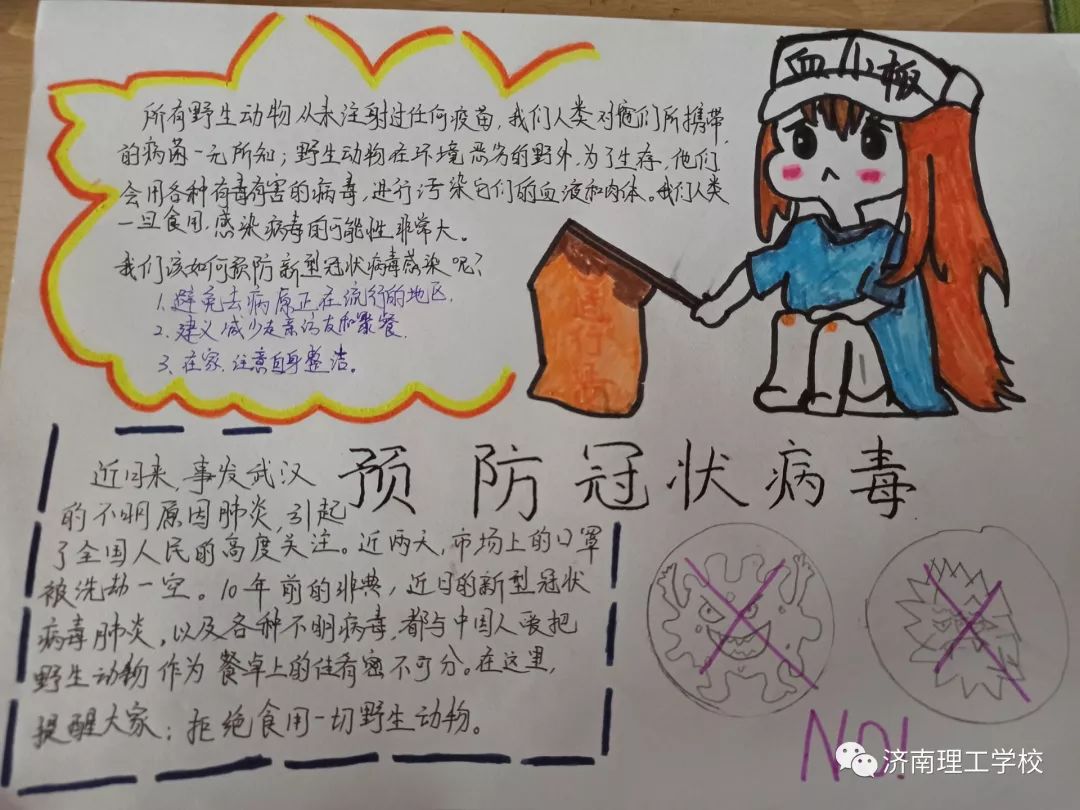 血小板
所有野生动物从未注射过任何疫苗,我们人类对它们所携带
的病菌一无所知;野生动物在环境恶劣的野外,为了生存,他们
会用各种有毒有害的病毒,进行污染它们的血液和肉体。我们人类
一旦食用,感染病毒的可能性非常大。
我们该如何预防新型冠状病毒感染呢?
1.避免去病原正在流行的地区.
2.建议减少走亲访友和聚餐.
3、在家注意自身整洁。
预防冠状病毒
近日来,事发武汉
的不明原因肺炎,引起
了全国人民的高度关注。近两天,市场上的口罩
被洗劫一空。10年前的非典,近日的新型冠状
病毒肺炎,以及各种不明病毒,都与中国人要把
野生动物作为餐桌上的佳肴密不可分。在这里,
提醒大家:拒绝食用一切野生动物。
NO!
济南理工学校